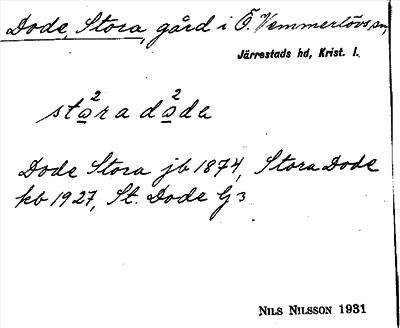 Dode, Stora, gård i Ö. Vemmerlövs sn,
Järrestads hd, Krist. l.
stoͤra doͤda
Dode Stora jb 1874, Stora Dode
kb 1927, St. Dode G3
NILS NILSSON 1931